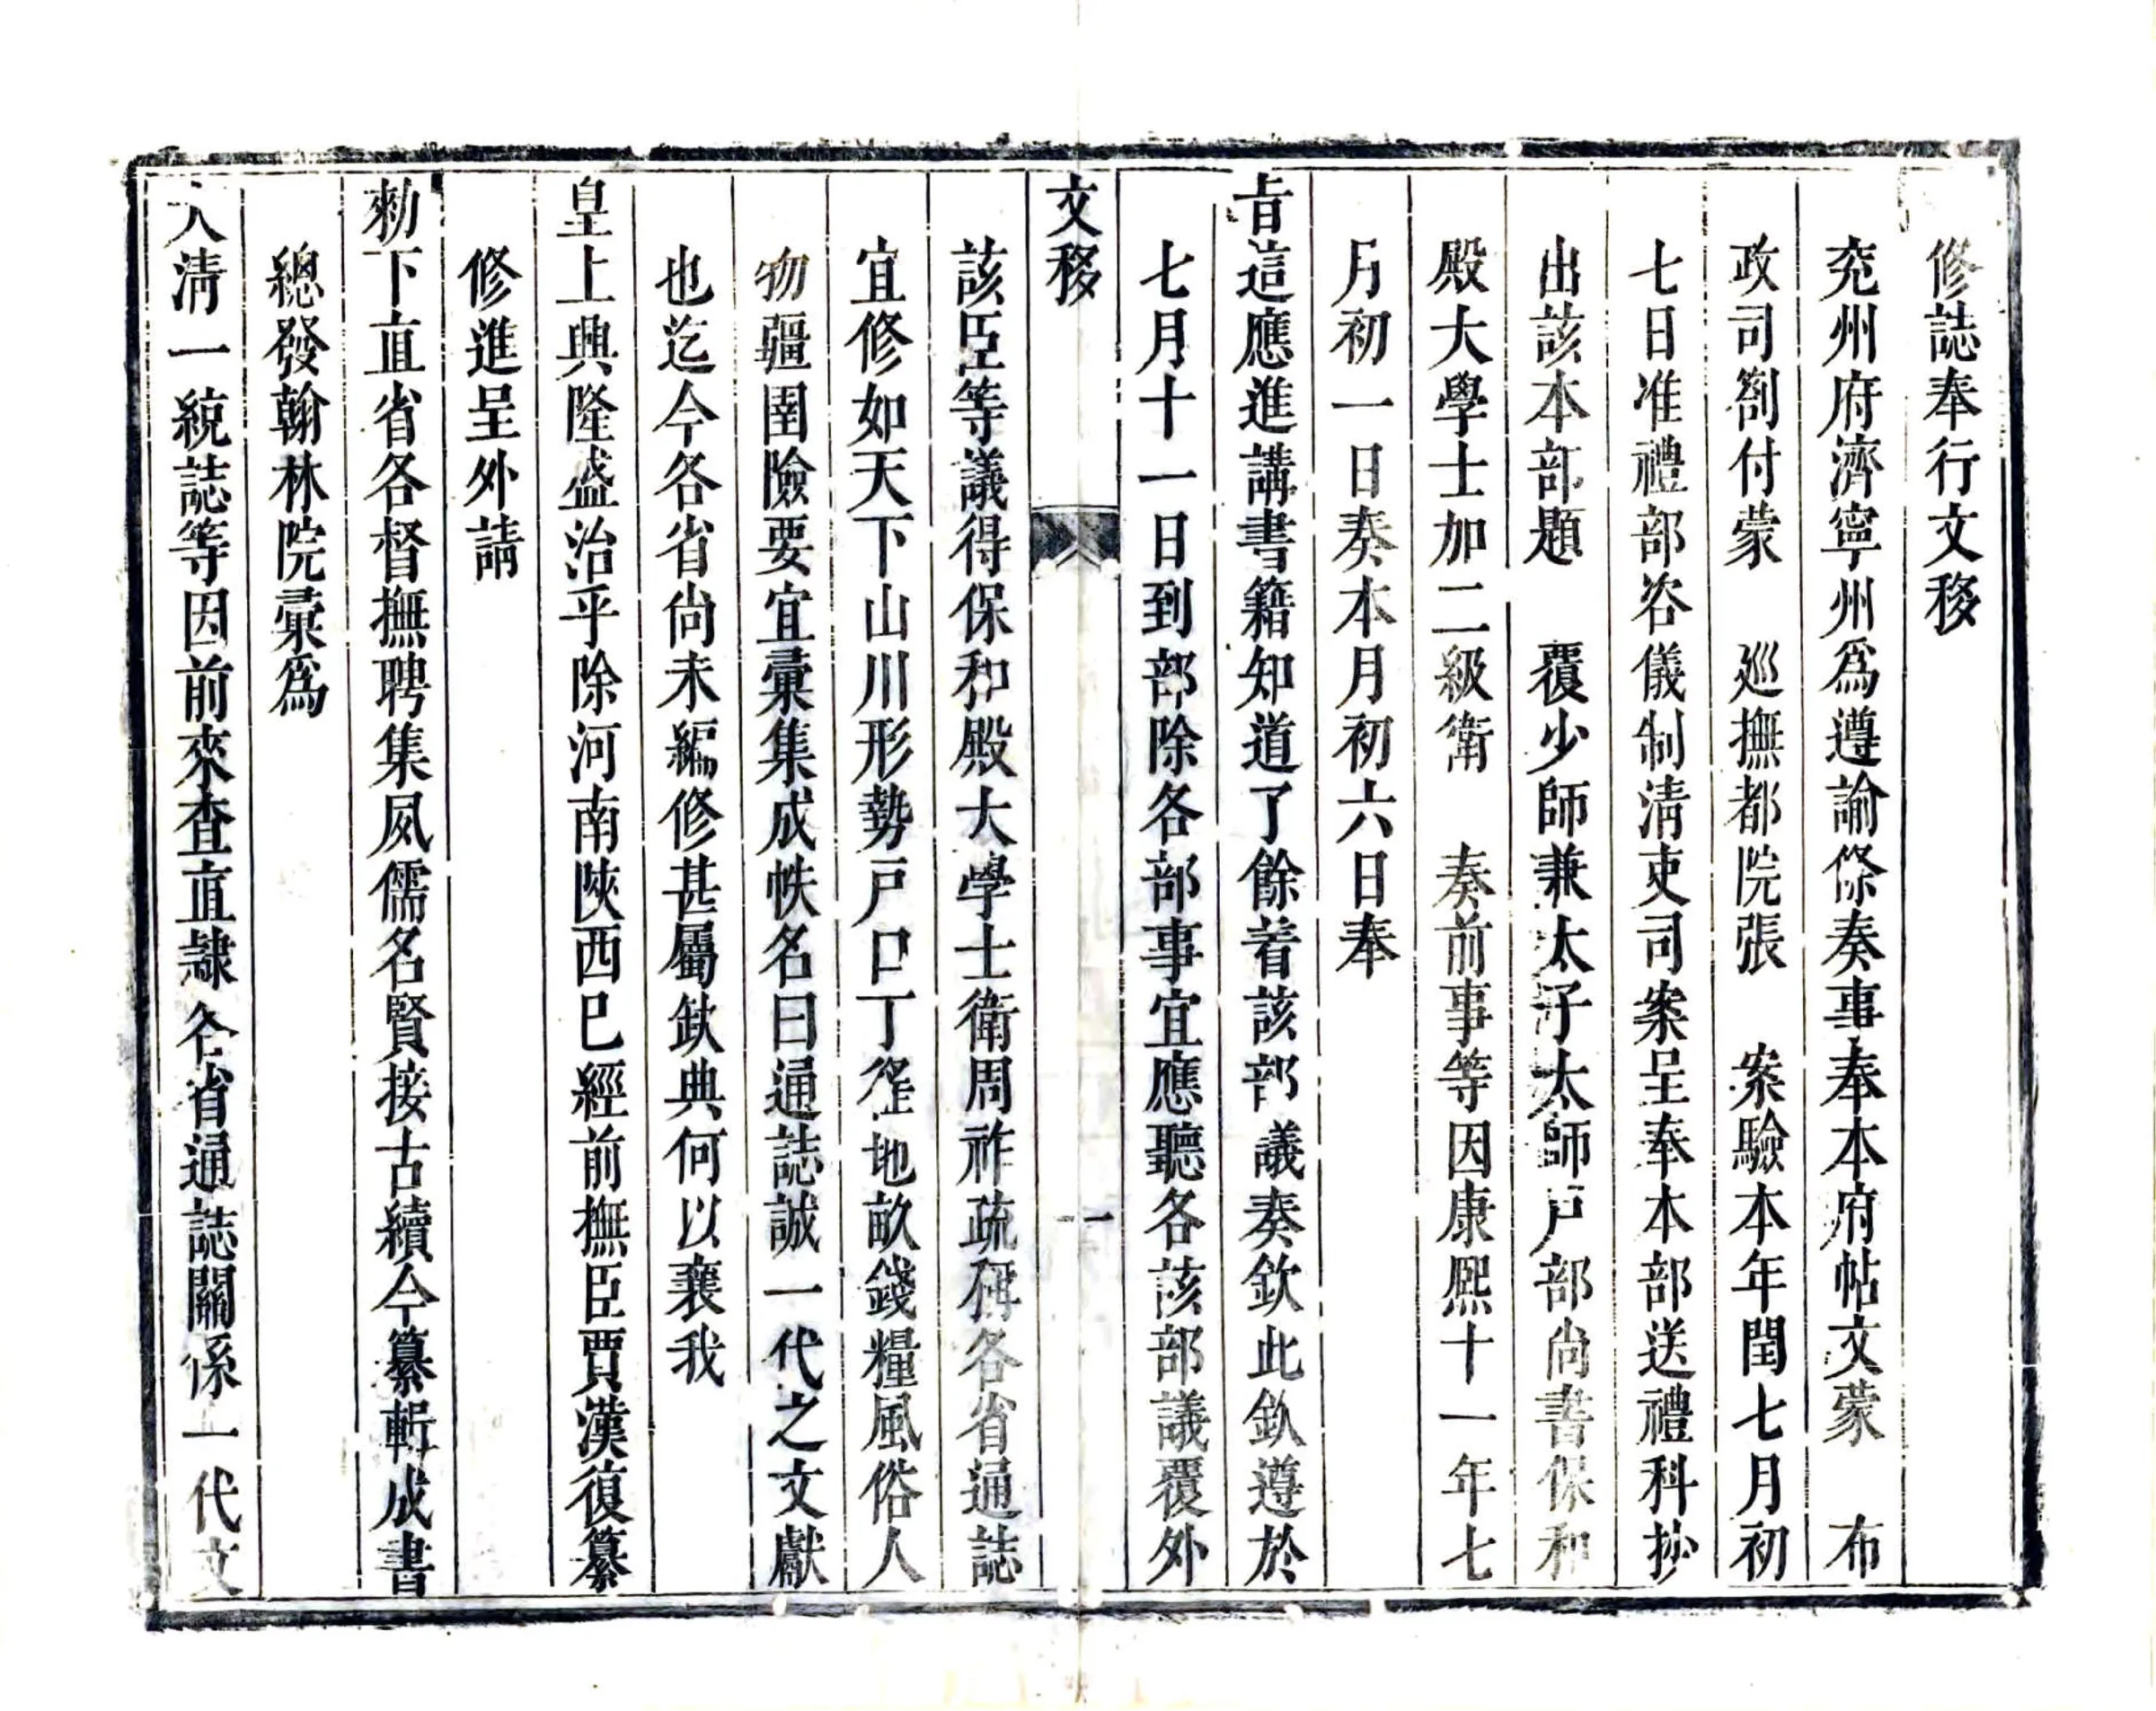 修誌奉行文移
兖州府濟寧州爲遵諭條奏事奉本府帖文蒙　布
政司劄付蒙　廵撫都院張　案驗本年閏七月初
七日准禮部咨儀制清吏司案呈奉本部送禮科抄
出該本部題　覆少師兼太子太師戸部尚書保和
殿大學士加二級衛　奏前事等因康熙十一年七
月初一日奏本月初六日奉
旨這應進講書籍知道了餘着該部議奏欽此欽遵於
七月十一日到部除各部事宜應聽各該部議覆外
文移
一
該臣等議得保和殿大學士衛周祚疏稱各省通誌
宜修如天下山川形勢戸口丁徭地畝錢糧風俗人
物疆圉險要宜彙集成帙名曰通誌誠一代之文獻
也迄今各省尚未編修甚屬欽典何以襄我
皇上興隆盛治乎除河南陝西已經前撫臣賈漢復纂
修進呈外請
勑下直省各督撫聘集夙儒名賢接古續今纂輯成書
總發翰林院彙爲
大清一統誌等因前來查直隸各省通誌關係一代文